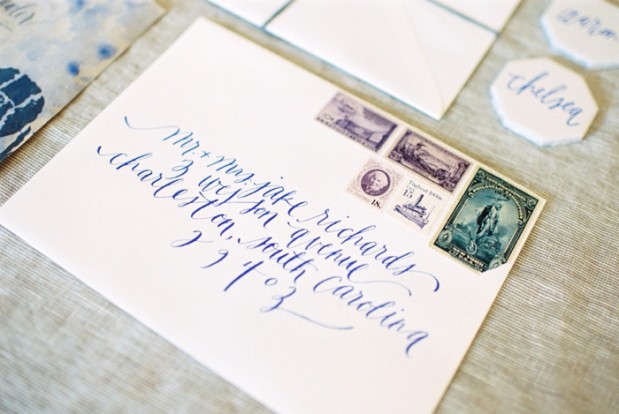 Mr. + Mrs. jake richards
3 wesson avenue
charleston, south carolina
29403
18c
15
chelsea